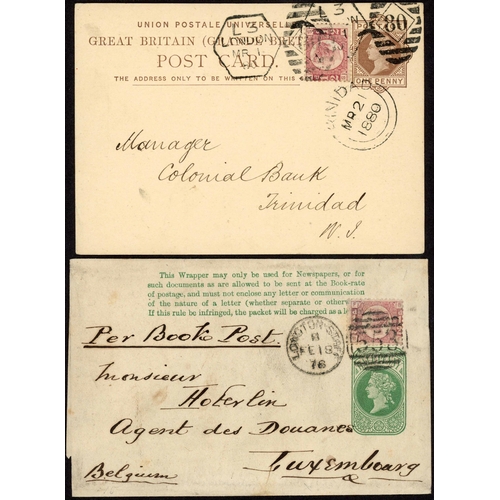 UNION POSTALE UNIVERSELLE
GREAT BRITAIN (GREAT BRETAGNE)
POST CARD.
THE ADDRESS ONLY TO BE WRITTEN ON THIS
ONE PENNY
LONDON
80
TRINIDAD
MR 21
1880
Manager
Colonial Bank
Trinidad
W. I.
This Wrapper may only be used for Newspapers, or for
such documents as are allowed to be sent at the Book-rate
of postage, and must not enclose any letter or communication
of the nature of a letter (whether separate or otherw
If this rule be infringed, the packet will be charged as a le
Per Book Post.
LONGTON-STAFF
FE 19
76
Monsieur
Hoferlin
Agent des Douanes
Luxembourg
Belgium